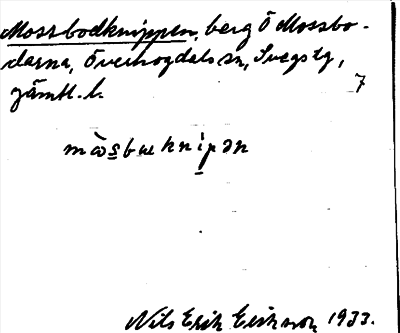 Mossbodknippen, berg Ö Mossbo-
darna, Överhogdals sn, Svegs tg,
Jämtl. l. 7
mɷ̀sbɯknipən
Nils Erik Erikson 1933.